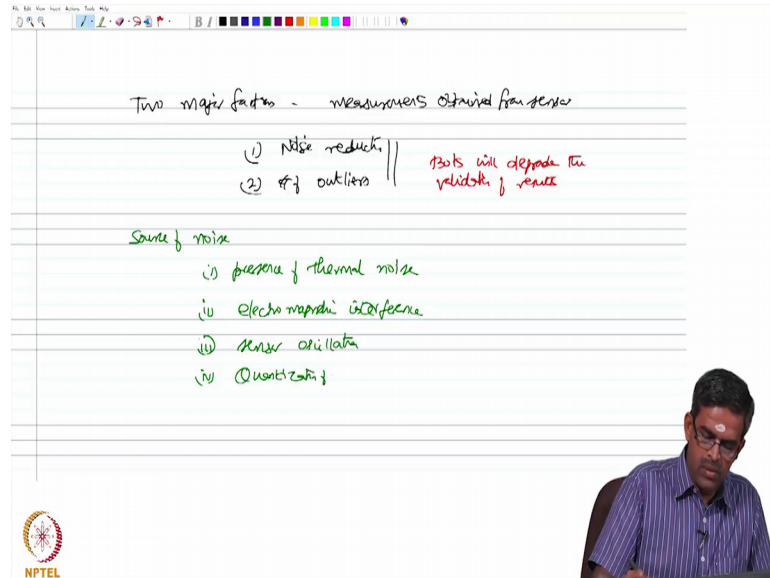 File Edit View Insert Actions Tools Help
B I
Two major factors - measurements obtained from sensor
(1) Noise reduction
(2) # of outliers
Both will degrade the
validity of results
Source of noise
(i) presence of thermal noise
(ii) electromagnetic interference
(iii) sensor oscillation
(iv) Quantization of
NPTEL